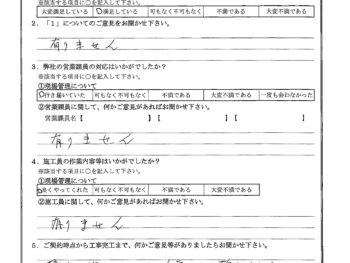 ※該当する項目に○を記入して下さい。
大変満足している ○満足している 可もなく不可もなく 不満である 大変不満である
2．「1」についてのご意見をお聞かせ下さい。
有りません
3．弊社の営業課員の対応はいかがでしたか？
※該当する項目に○を記入して下さい。
①現場管理について
○行き届いていた 可もなく不可もなく 不満である 大変不満である 一度も会わなかった
②営業課員に関して、何かご意見があればお聞かせ下さい。
営業課員名【 】【 】【 】
有りません
4．施工員の作業内容等はいかがでしたか？
※該当する項目に○を記入して下さい。
①現場管理について
○良くやってくれた 可もなく不可もなく 不満である 大変不満である
②施工員に関して、何かご意見があればお聞かせ下さい。
有りません
5．ご契約時点から工事完工まで、何かご意見等がありましたらお聞かせ下さい。